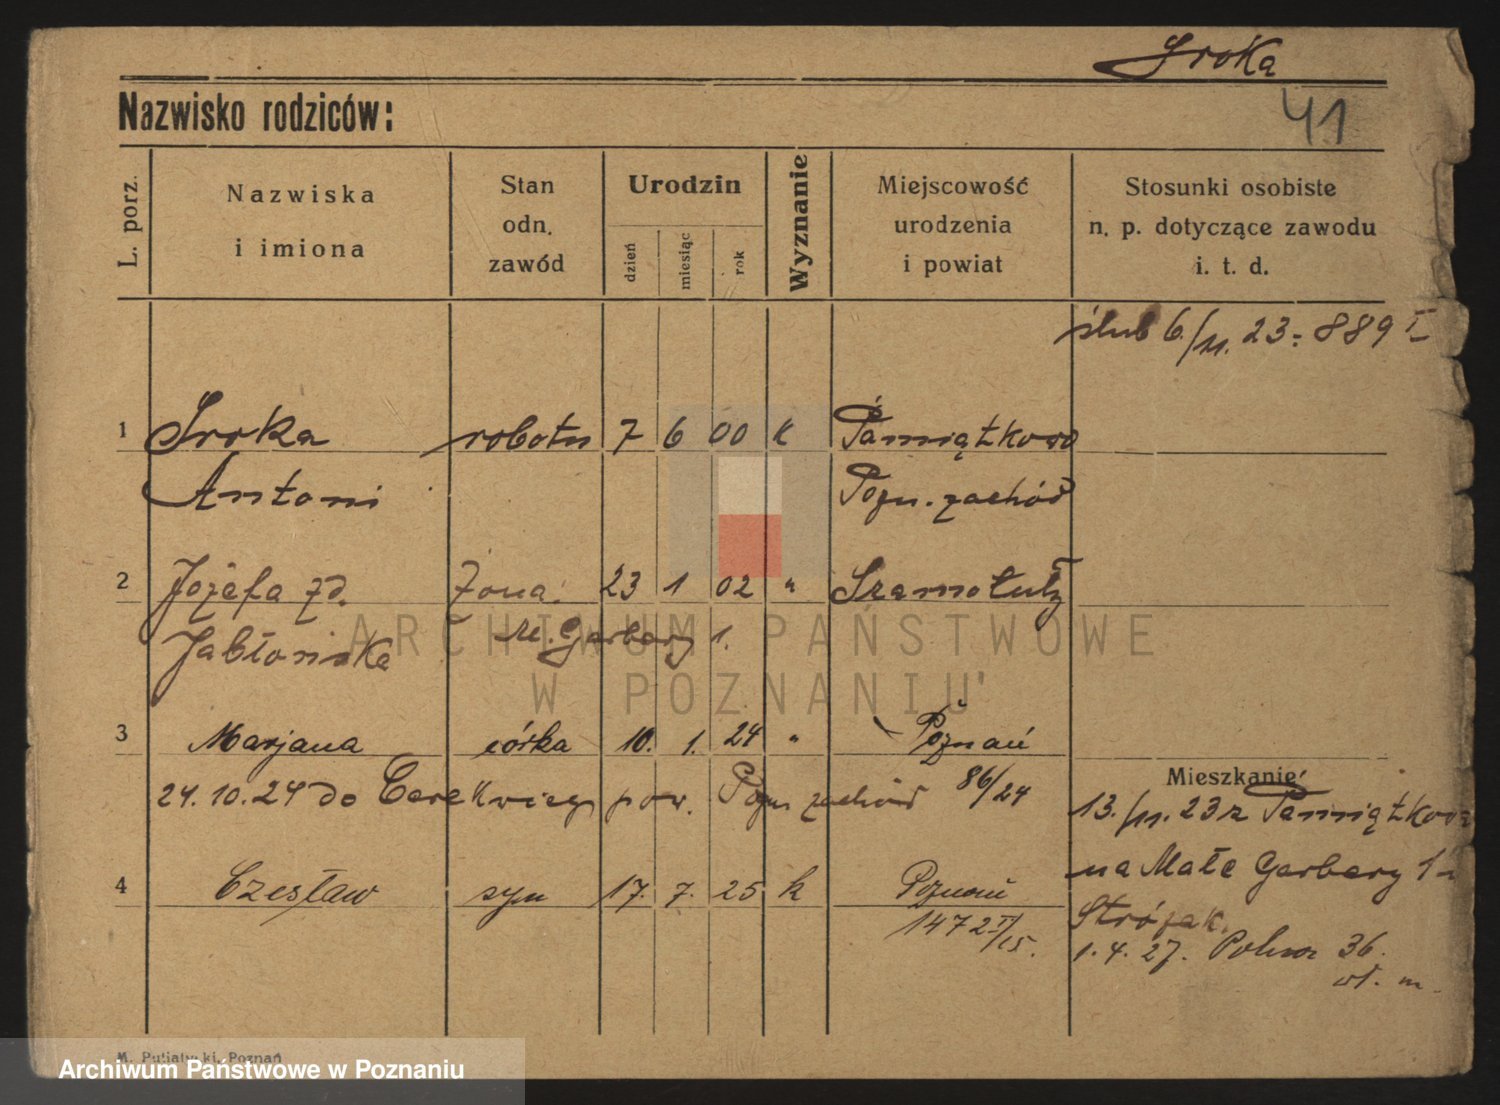 Sroka
41
Nazwisko rodziców:
L. porz.
Nazwiska
i imiona
Stan
odn.
zawód
Urodzin
dzień
miesiąc
rok
Wyznanie
Miejscowość
urodzenia
i powiat
Stosunki osobiste
n. p. dotyczące zawodu
i. t. d.
ślub 6./11. 23 = 889 I
1 Sroka robotn 7 6 00 k Pamiątkowo
Antoni Pozn. zachód
2 Józefa zd. żona 23 1 02 " Szamotuły
Jabłońska M. Garbary 1.
3 Marjana córka 10. 1. 24 " Poznań
24.10.24 do Cerekwicy pow. Pozn zachód 86/24
Mieszkanie:
13./11. 23 z Pamiątkowa
na Małe Garbary 1
4 Czesław syn 17. 7. 25 k Poznań
1472 II/25.
Strójak.
1. 4. 27. 36.
wł. m.
ARCHIWUM PAŃSTWOWE
W POZNANIU
M. Putiatycki, Poznań
Archiwum Państwowe w Poznaniu